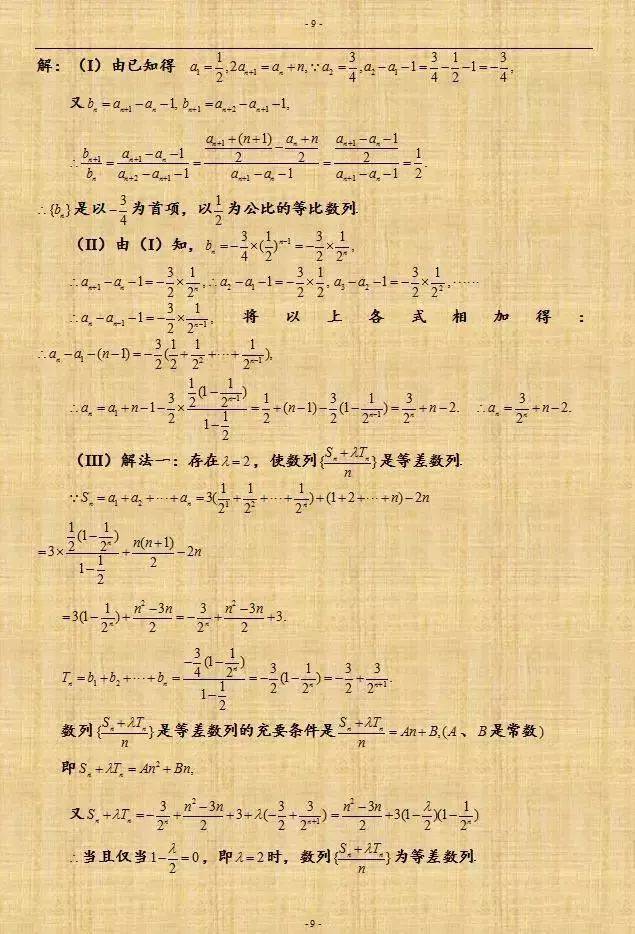 - 9 -
解：（I）由已知得 a₁=1/2,2aₙ₊₁=aₙ+n,∵a₂=3/4,a₂-a₁-1=3/4-1/2-1=-3/4,
又bₙ=aₙ₊₁-aₙ-1,bₙ₊₁=aₙ₊₂-aₙ₊₁-1,
∴bₙ₊₁/bₙ=(aₙ₊₁-aₙ-1)/(aₙ₊₂-aₙ₊₁-1)=((aₙ₊₁+(n+1))/2-(aₙ+n)/2)/(aₙ₊₁-aₙ-1)=((aₙ₊₁-aₙ-1)/2)/(aₙ₊₁-aₙ-1)=1/2.
∴{bₙ}是以-3/4为首项，以1/2为公比的等比数列.
（II）由（I）知，bₙ=-3/4×(1/2)ⁿ⁻¹=-3/2×1/2ⁿ,
∴aₙ₊₁-aₙ-1=-3/2×1/2ⁿ,∴a₂-a₁-1=-3/2×1/2,a₃-a₂-1=-3/2×1/2²,⋯⋯
∴aₙ-aₙ₋₁-1=-3/2×1/2ⁿ⁻¹,将以上各式相加得：
∴aₙ-a₁-(n-1)=-3/2(1/2+1/2²+⋯+1/2ⁿ⁻¹),
∴aₙ=a₁+n-1-3/2×(1/2(1-1/2ⁿ⁻¹))/(1-1/2)=1/2+(n-1)-3/2(1-1/2ⁿ⁻¹)=3/2ⁿ+n-2. ∴aₙ=3/2ⁿ+n-2.
（III）解法一：存在λ=2，使数列{(Sₙ+λTₙ)/n}是等差数列.
∵Sₙ=a₁+a₂+⋯+aₙ=3(1/2¹+1/2²+⋯+1/2ⁿ)+(1+2+⋯+n)-2n
=3×(1/2(1-1/2ⁿ))/(1-1/2)+n(n+1)/2-2n
=3(1-1/2ⁿ)+(n²-3n)/2=-3/2ⁿ+(n²-3n)/2+3.
Tₙ=b₁+b₂+⋯+bₙ=(-3/4(1-1/2ⁿ))/(1-1/2)=-3/2(1-1/2ⁿ)=-3/2+3/2ⁿ⁺¹.
数列{(Sₙ+λTₙ)/n}是等差数列的充要条件是(Sₙ+λTₙ)/n=An+B,(A、B是常数)
即Sₙ+λTₙ=An²+Bn,
又Sₙ+λTₙ=-3/2ⁿ+(n²-3n)/2+3+λ(-3/2+3/2ⁿ⁺¹)=(n²-3n)/2+3(1-λ/2)(1-1/2ⁿ)
∴当且仅当1-λ/2=0，即λ=2时，数列{(Sₙ+λTₙ)/n}为等差数列.
- 9 -